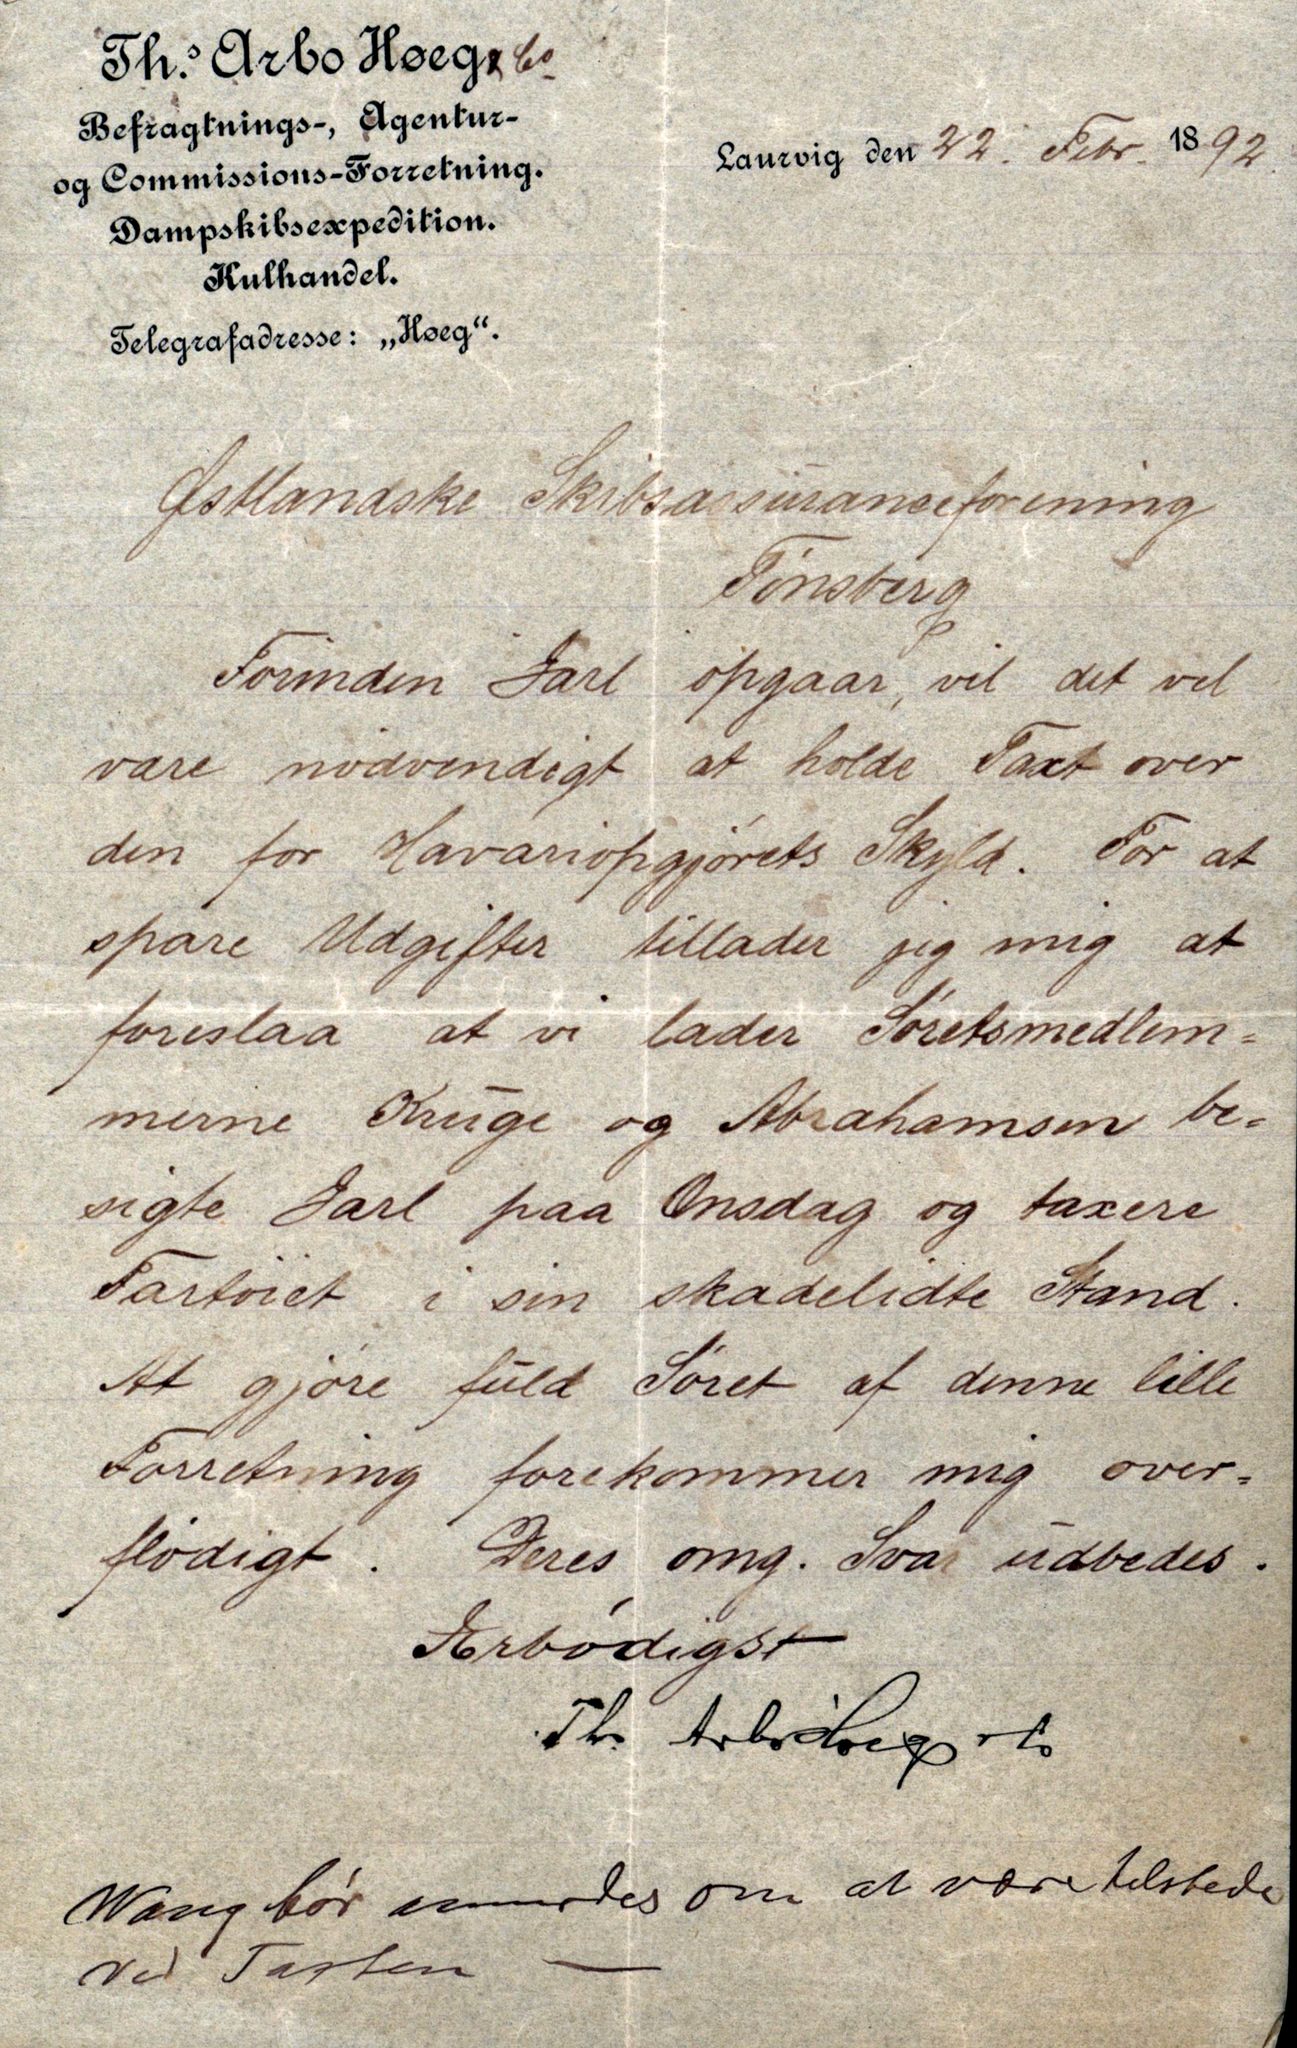 Th.s Arbo Høeg & Co
Befragtnings-, Agentur-
og Commissions-Forretning.
Dampskibsexpedition.
Kulhandel.
Telegrafadresse: „Høeg“.
Laurvig den 22. Febr. 1892.
Østlandske Skibsassuranceforening
Tönsberg
Forinden Jarl opgaar, vil det vel
være nödvendigt at holde Taxt over
den for Havariopgjörets Skyld. For at
spare Udgifter tillader jeg mig at
foreslaa at vi lader Söretsmedlem=
merne Kruge og Abrahamsen be=
sigte Jarl paa Onsdag og taxere
Fartöiet i sin skadelidte Stand.
At gjöre fuld Söret af denne lille
Forretning forekommer mig over=
flödigt. Deres omg. Svar udbedes.
Ærbödigst
Th. Arbo Høeg & Co
Wang bör om at være tilstede
ved Taxten —